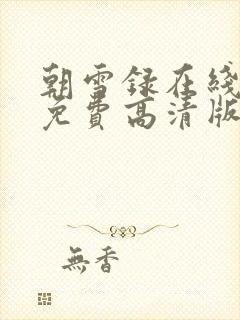 朝雪録在綫
免費高清版
無香